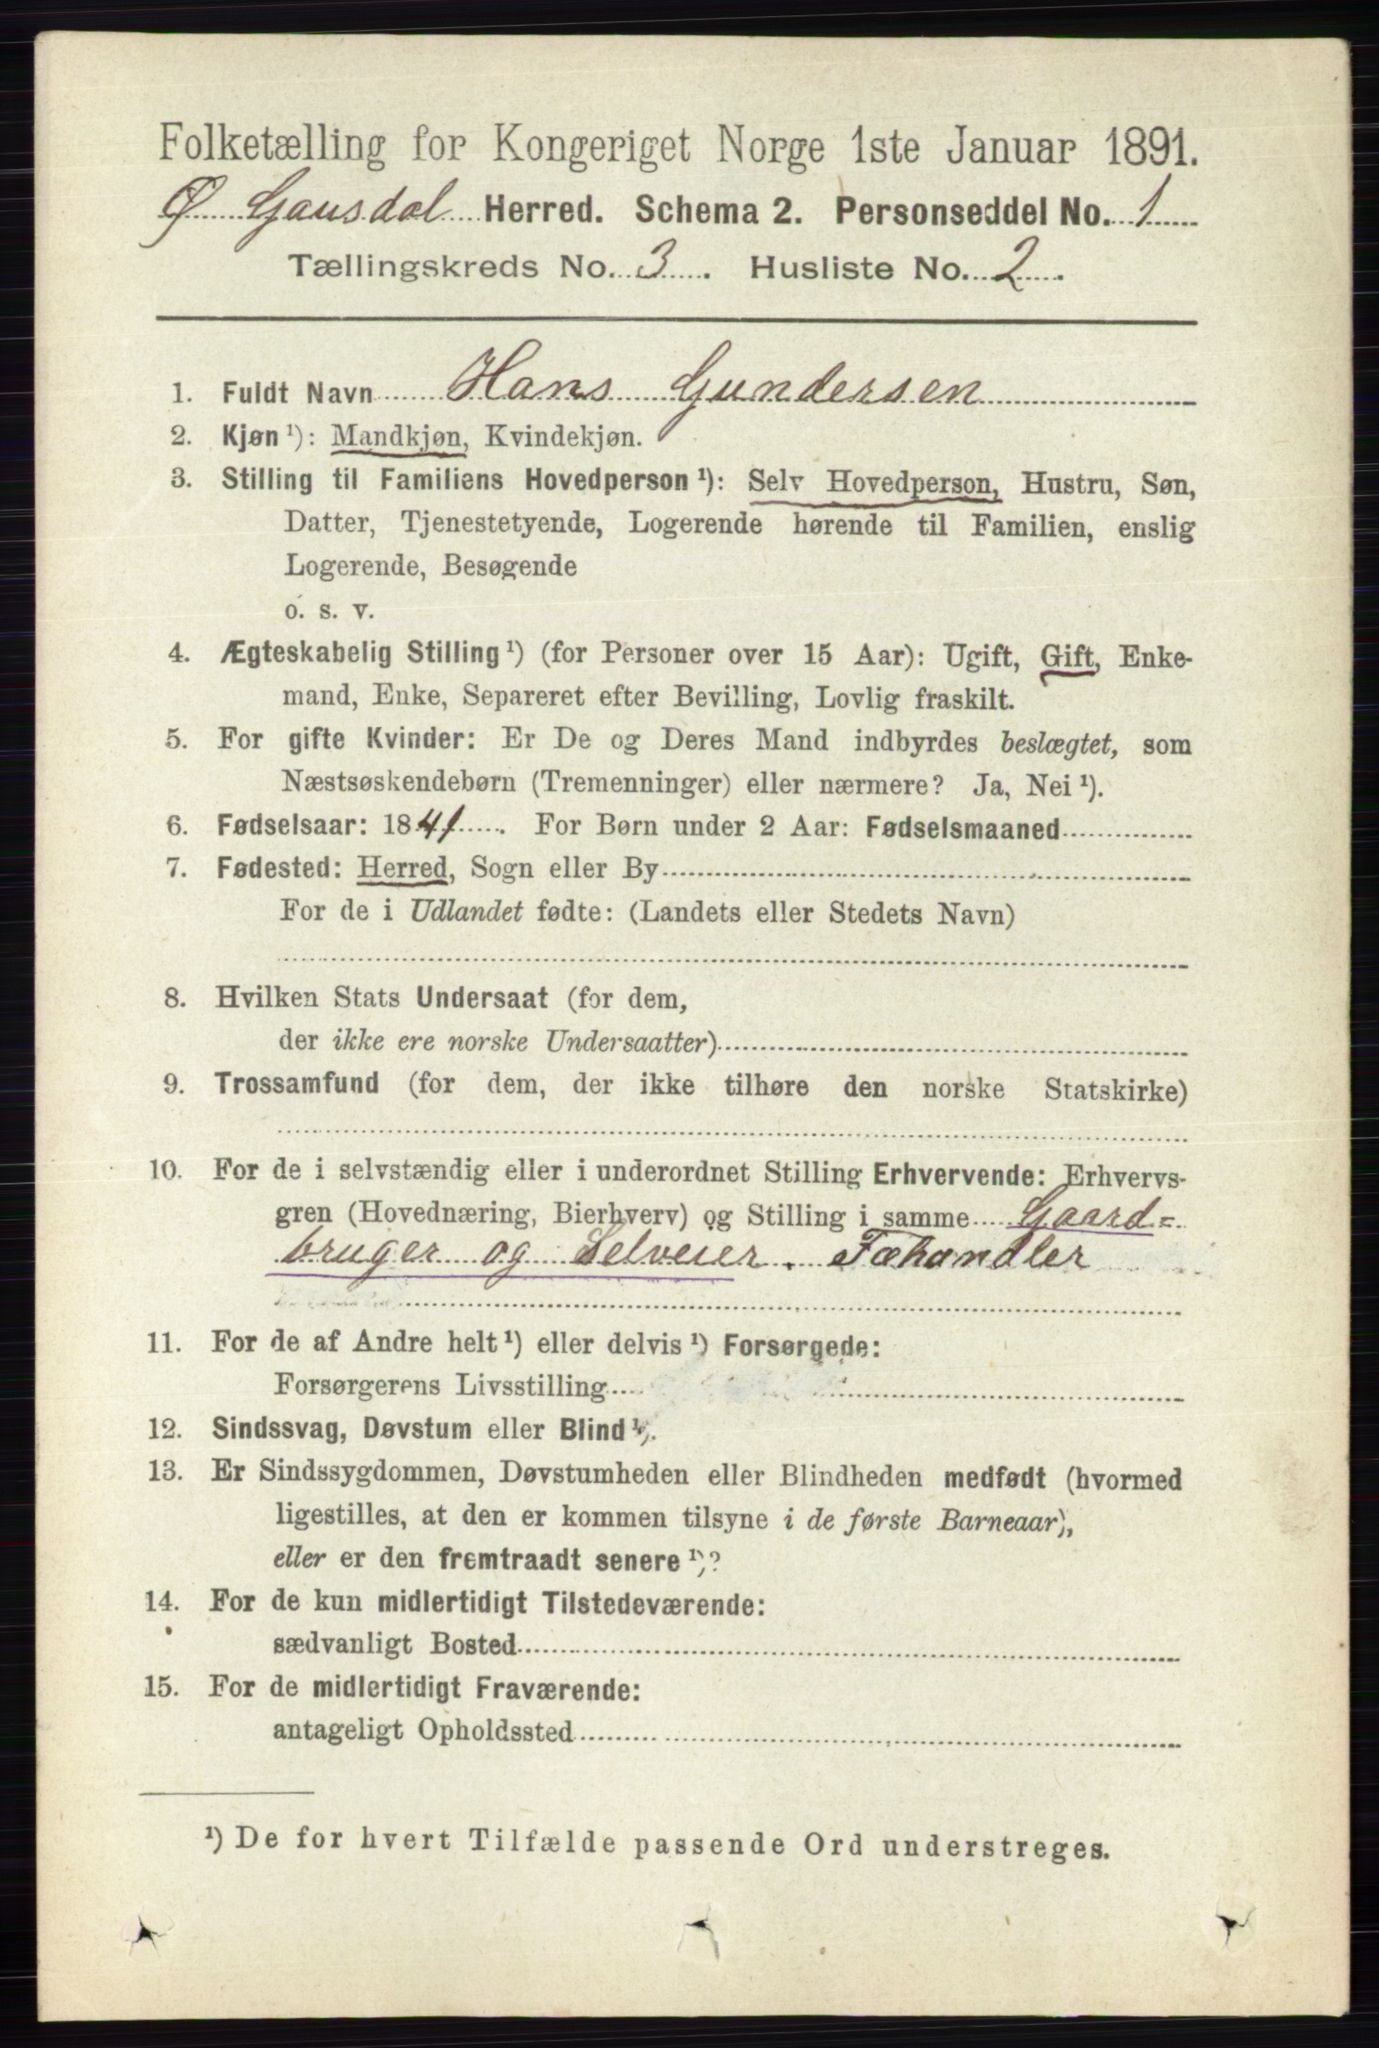 Folketælling for Kongeriget Norge 1ste Januar 1891.
Ø. Gausdal Herred. Schema 2. Personseddel No. 1
Tællingskreds No. 3. Husliste No. 2.
1. Fuldt Navn Hans Gundersen
2. Kjøn ¹): Mandkjøn, Kvindekjøn.
3. Stilling til Familiens Hovedperson ¹): Selv Hovedperson, Hustru, Søn,
Datter, Tjenestetyende, Logerende hørende til Familien, enslig
Logerende, Besøgende
o. s. v.
4. Ægteskabelig Stilling ¹) (for Personer over 15 Aar): Ugift, Gift, Enke-
mand, Enke, Separeret efter Bevilling, Lovlig fraskilt.
5. For gifte Kvinder: Er De og Deres Mand indbyrdes beslægtet, som
Næstsøskendebørn (Tremenninger) eller nærmere? Ja, Nei ¹).
6. Fødselsaar: 1841. For Børn under 2 Aar: Fødselsmaaned
7. Fødested: Herred, Sogn eller By
For de i Udlandet fødte: (Landets eller Stedets Navn)
8. Hvilken Stats Undersaat (for dem,
der ikke ere norske Undersaatter)
9. Trossamfund (for dem, der ikke tilhøre den norske Statskirke)
10. For de i selvstændig eller i underordnet Stilling Erhvervende: Erhvervs-
gren (Hovednæring, Bierhverv) og Stilling i samme Gaard=
bruger og Selveier. Fæhandler
11. For de af Andre helt ¹) eller delvis ¹) Forsørgede:
Forsørgerens Livsstilling
12. Sindssvag, Døvstum eller Blind ¹).
13. Er Sindssygdommen, Døvstumheden eller Blindheden medfødt (hvormed
ligestilles, at den er kommen tilsyne i de første Barneaar),
eller er den fremtraadt senere ¹)?
14. For de kun midlertidigt Tilstedeværende:
sædvanligt Bosted
15. For de midlertidigt Fraværende:
antageligt Opholdssted
¹) De for hvert Tilfælde passende Ord understreges.